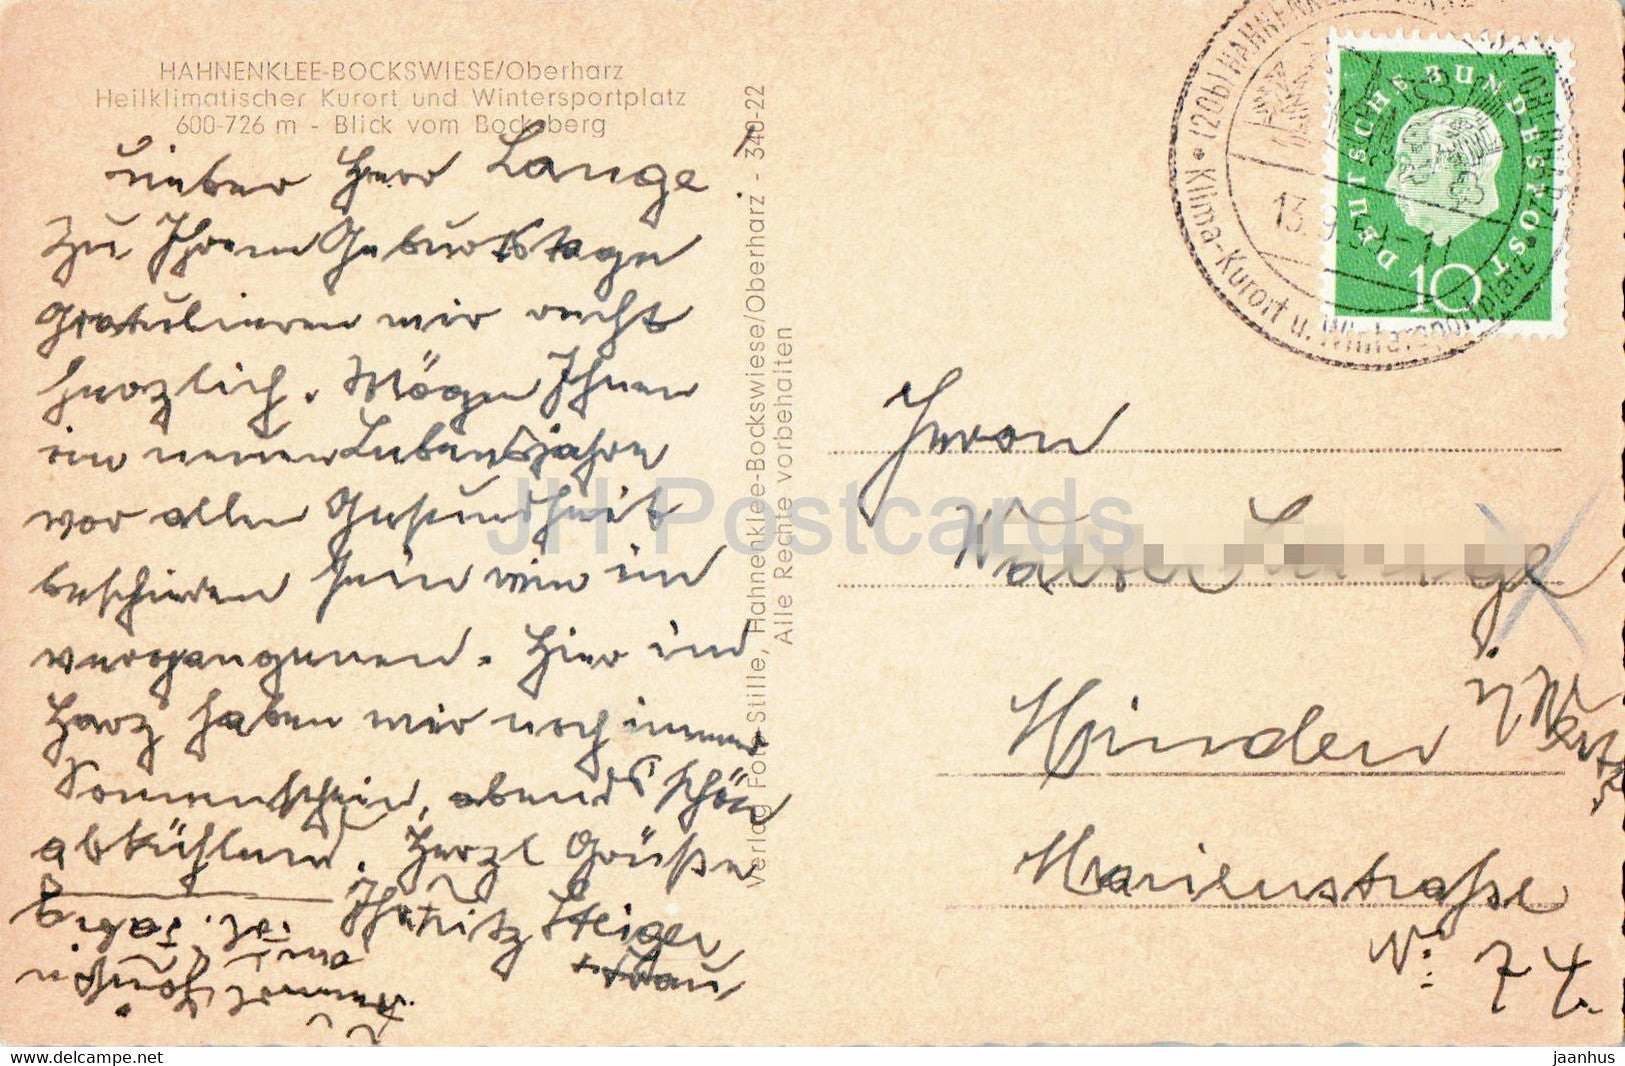 HAHNENKLEE-BOCKSWIESE/Oberharz
Heilklimatischer Kurort und Wintersportplatz
600-726 m - Blick vom Bocksberg
Lieber Herr Lange
Zu Ihrem Geburtstage
gratulieren wir recht
herzlich. Mögen Ihnen
im neuen Lebensjahre
vor allem Gesundheit
beschieden sein wie im
vergangenen. Hier im
Harz haben wir noch immer
Sonnenschein, abends schön
abkühlend. Herzl Grüße
Ihr Fritz Steiger
+ Frau
Verlag Foto Stille, Hahnenklee-Bockswiese/Oberharz - 340-22
Alle Rechte vorbehalten
(20b) HAHNENKLEE
Klima-Kurort u. Wintersportplatz
13.9.
DEUTSCHE BUNDESPOST
10
Herrn
Walter Lange
Minden i. Westf.
Marienstraße
Nr: 74.
JH Postcards
www.delcampe.net
jaanhus